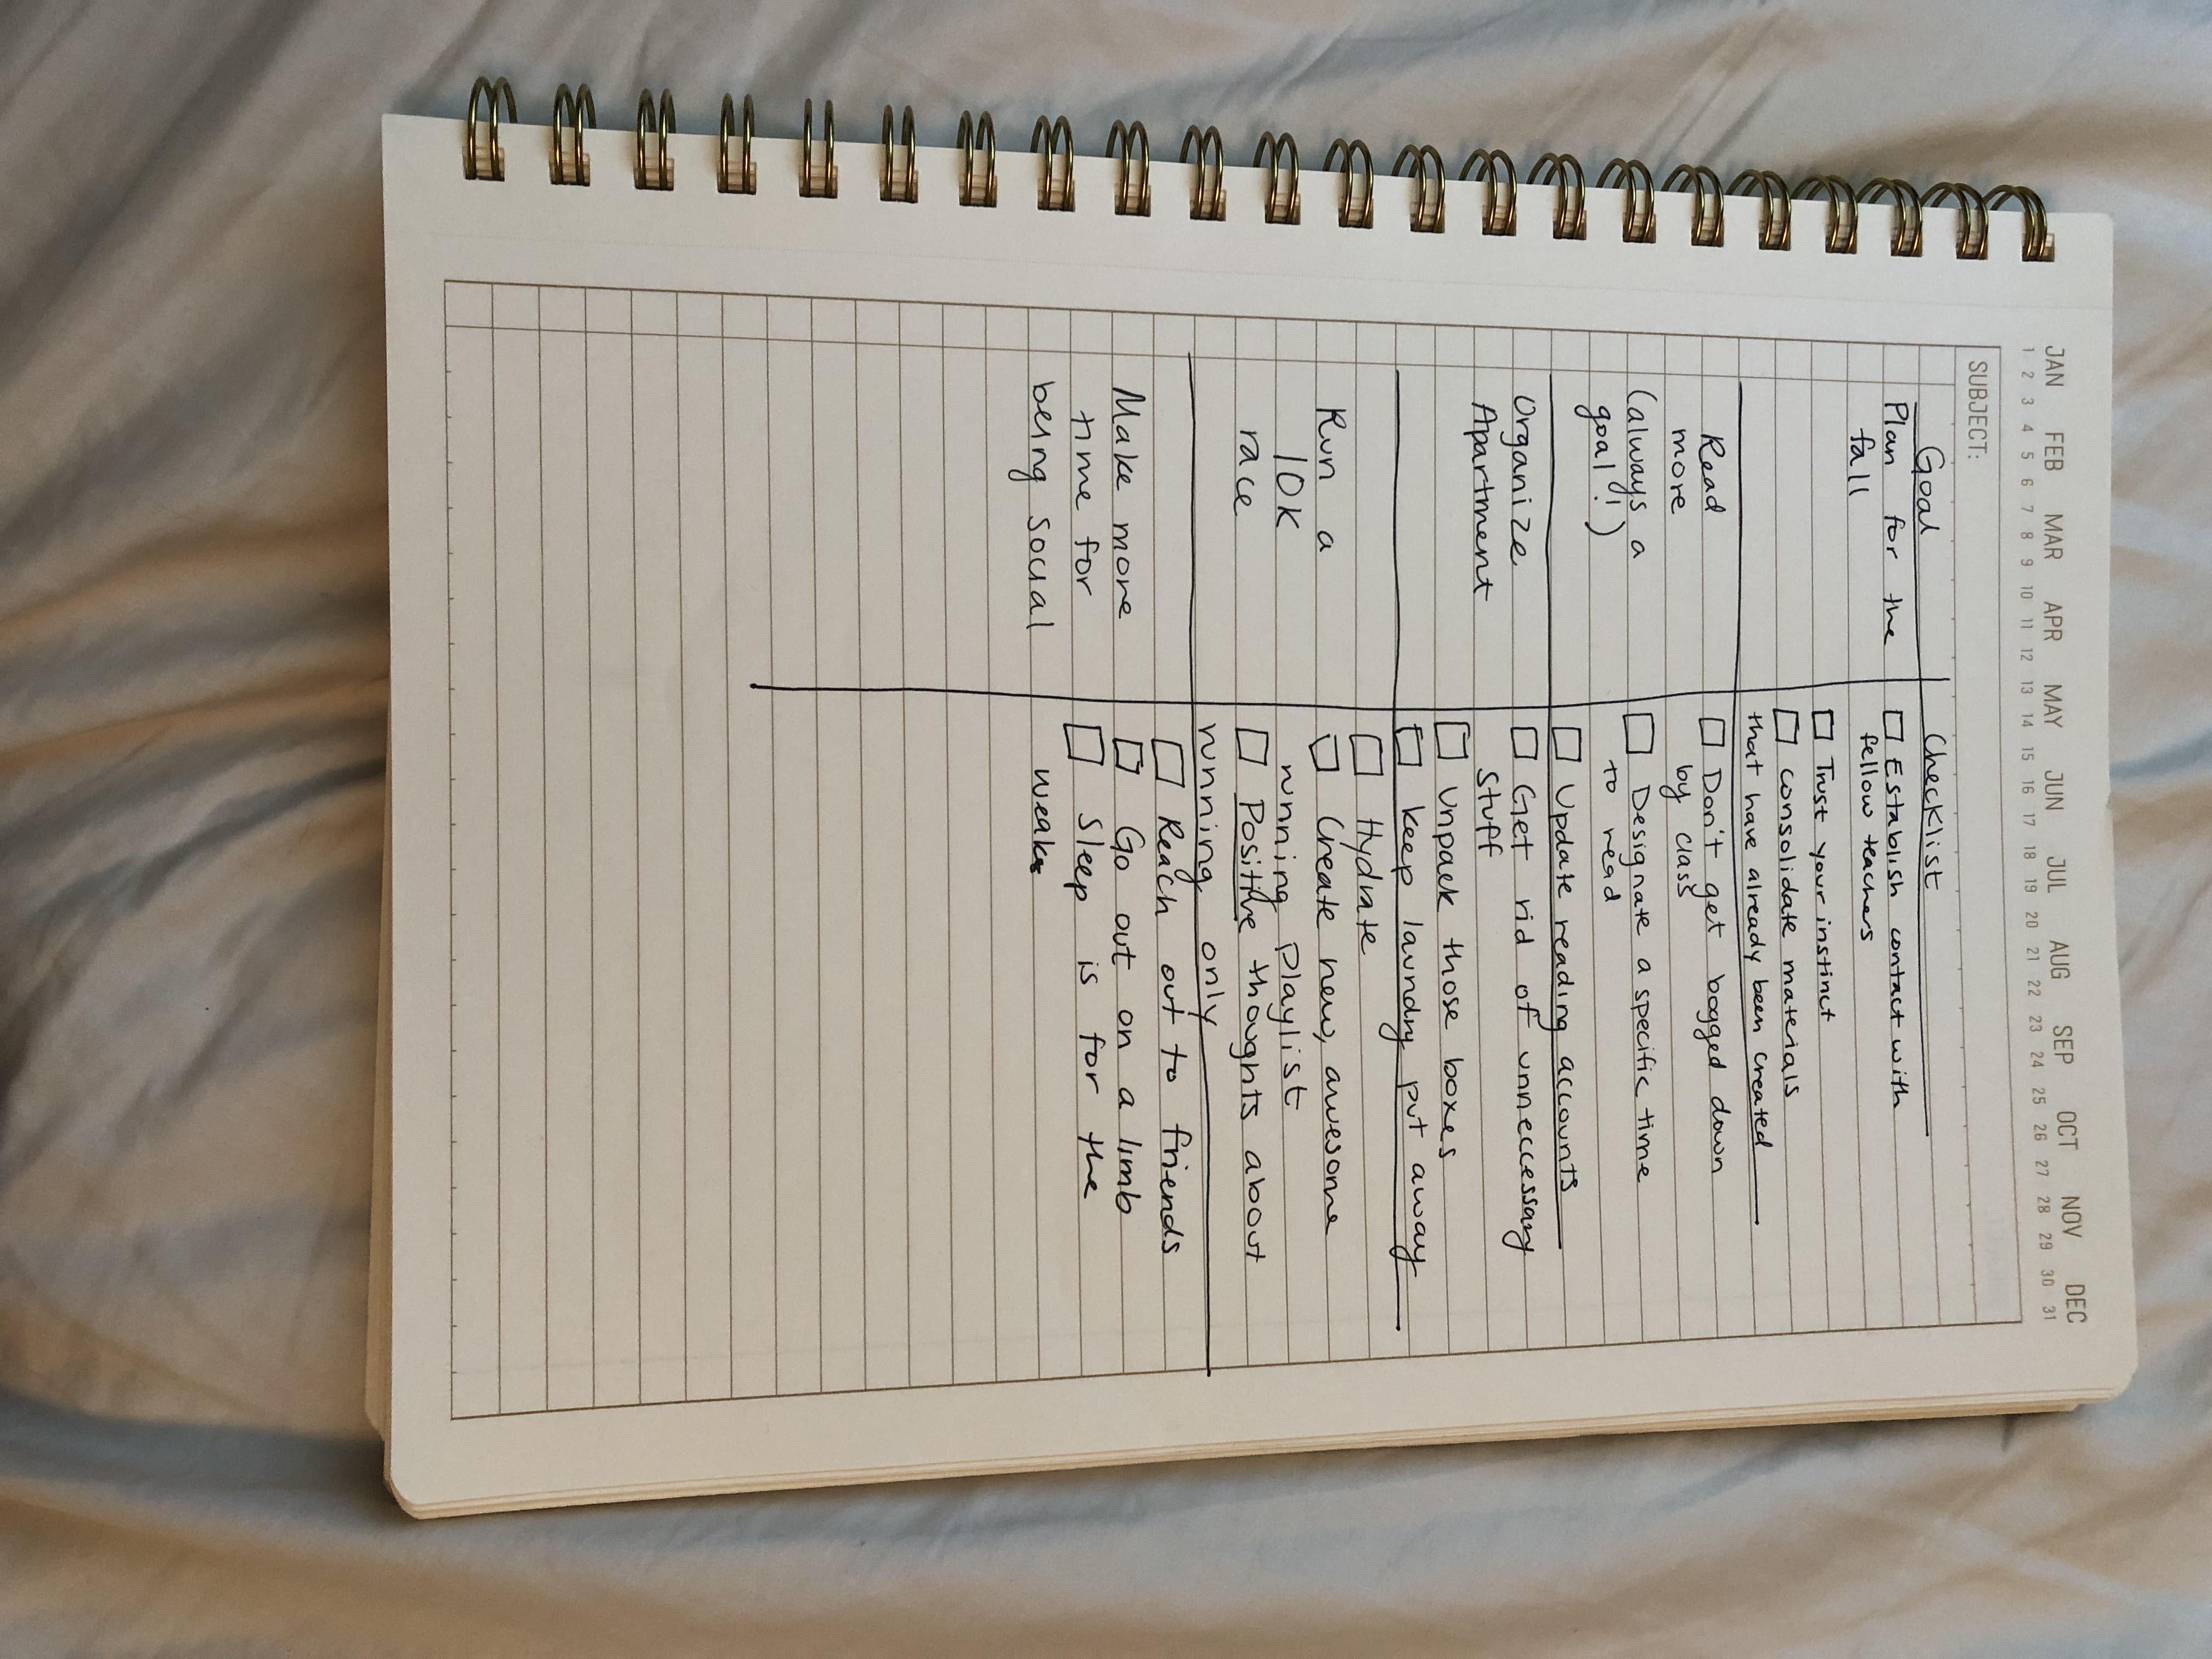 JAN FEB MAR APR MAY JUN JUL AUG SEP OCT NOV DEC
1 2 3 4 5 6 7 8 9 10 11 12 13 14 15 16 17 18 19 20 21 22 23 24 25 26 27 28 29 30 31
SUBJECT:
Goal Checklist
Plan for the □ Establish contact with
fall fellow teachers
□ Trust your instinct
□ consolidate materials
that have already been created
Read □ Don't get bogged down
more by class
(always a □ Designate a specific time
goal!) to read
□ Update reading accounts
Organize □ Get rid of unneccessary
Apartment stuff
□ Unpack those boxes
□ keep laundry put away
□ Hydrate
Run a □ Create new, awesome
10K running playlist
race □ Positive thoughts about
running only
□ Reach out to friends
Make more □ Go out on a limb
time for □ Sleep is for the
being social weak